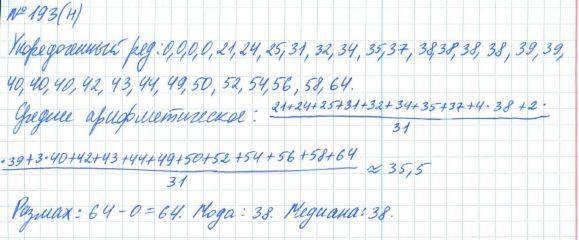 № 193(н)
Упорядоченный ряд: 0,0,0,0,21,24,25,31, 32, 34, 35,37, 38,38,38,38, 39, 39,
40,40,40, 42, 43, 44, 49, 50, 52, 54,56, 58, 64.
Среднее арифметическое: 21+24+25+31+32+34+35+37+4·38+2·
31
·39+3·40+42+43+44+49+50+52+54+56+58+64
31 ≈ 35,5
Размах: 64-0=64. Мода: 38. Медиана: 38.